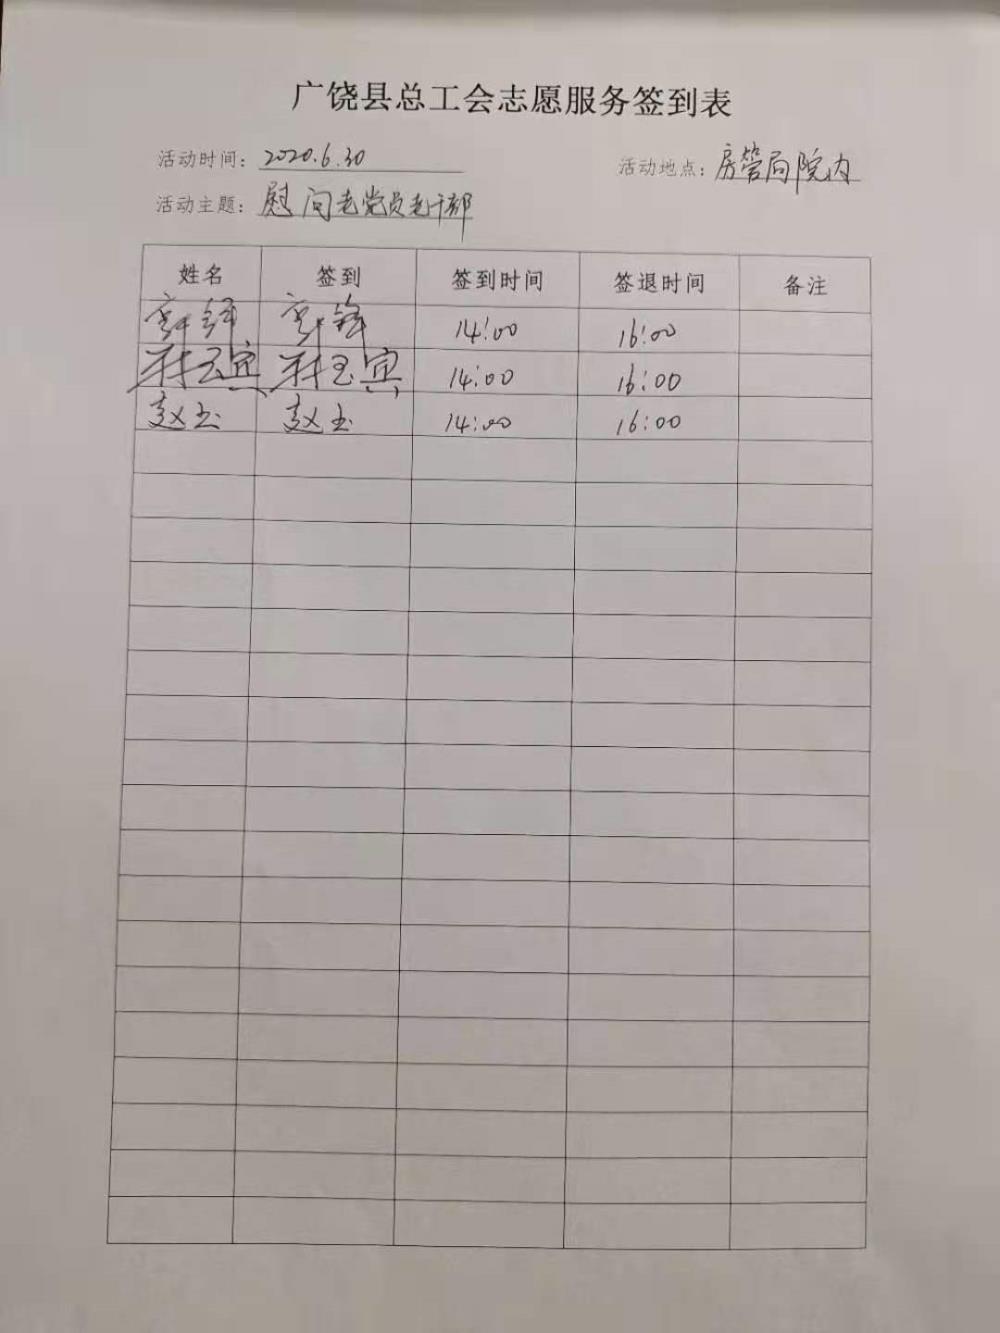 广饶县总工会志愿服务签到表
活动时间：2020.6.30 活动地点：房管局院内
活动主题：慰问老党员老干部
姓名 签到 签到时间 签退时间 备注
14:00 16:00
14:00 16:00
赵玉 赵玉 14:00 16:00